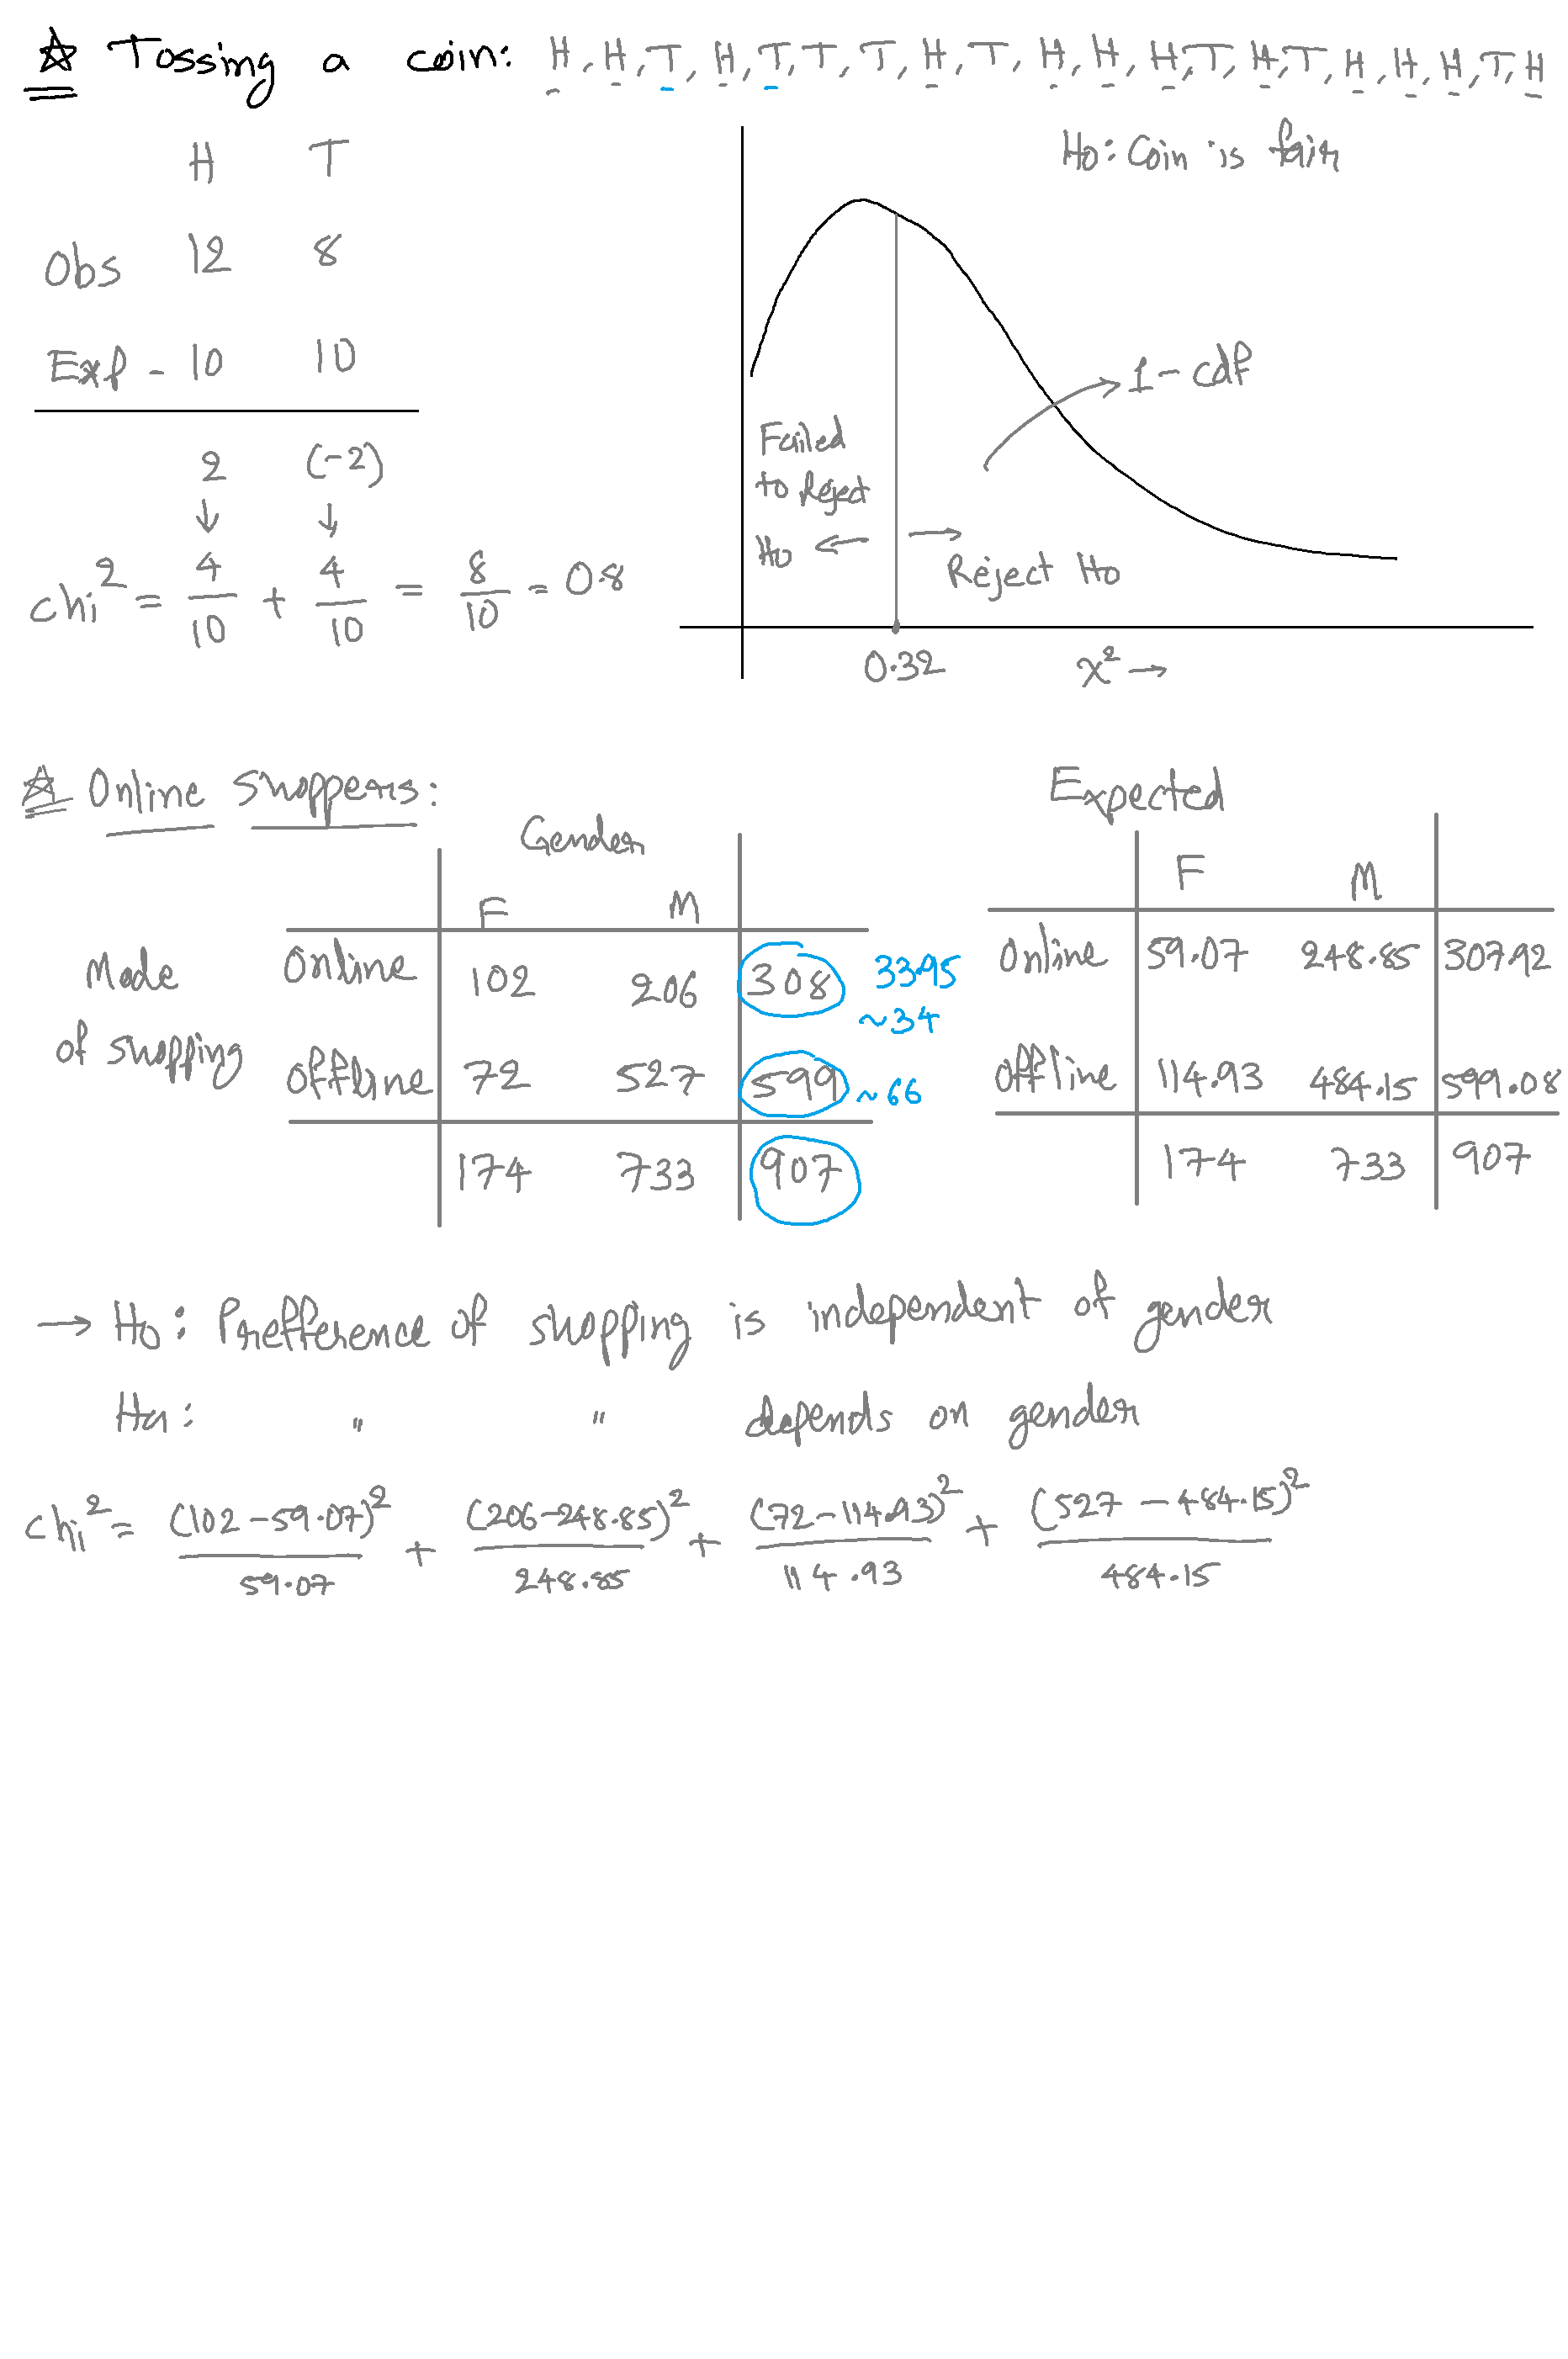 ☆ Tossing a coin: H, H, T, H, T, T, T, H, T, H, H, H, T, H, T, H, H, H, T, H
H T
Obs 12 8
Exp - 10 10
2 (-2)
↓ ↓
chi² = 4/10 + 4/10 = 8/10 = 0.8
Ho: Coin is fair
→ 1 - cdf
Failed
to Reject
Ho ←
→ Reject Ho
0.32 x² →
☆ Online shoppers:
Gender
F M
Mode of shopping
Online 102 206 308 33.95 ~34
Offline 72 527 599 ~66
174 733 907
Expected
F M
Online 59.07 248.85 307.92
Offline 114.93 484.15 599.08
174 733 907
→ Ho: Prefference of shopping is independent of gender
Ha: " " depends on gender
chi² = (102-59.07)²/59.07 + (206-248.85)²/248.85 + (72-114.93)²/114.93 + (527-484.15)²/484.15